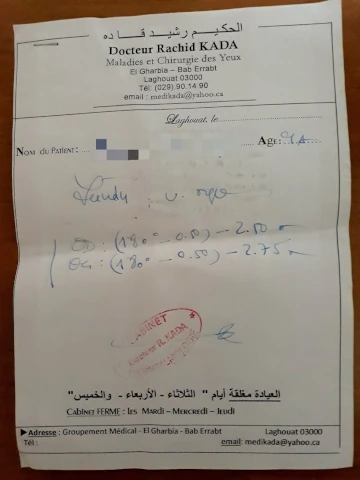 الحكيم رشيد قاده
Docteur Rachid KADA
Maladies et Chirurgie des Yeux
El Gharbia – Bab Errabt
Laghouat 03000
Tél: (029).90.14.90
email : medikada@yahoo.ca
Laghouat, le
Nom du Patient: AGE:
OD : (180° - 0.50) - 2.50
OG : (180° - 0.50) - 2.75
CABINET
R. KADA
العيادة مغلقة أيام " الثلاثاء - الأربعاء - والخميس"
Cabinet FERME : Les Mardi – Mercredi – Jeudi
Adresse : Groupement Médical - El Gharbia - Bab Errabt Laghouat 03000
Tél : email: medikada@yahoo.ca